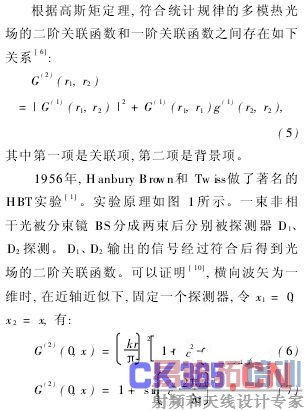 根据高斯矩定理,符合统计规律的多模热光
场的二阶关联函数和一阶关联函数之间存在如下
关系[6]:
G(2)(r1, r2)
= | G(1)(r1, r2) |2 + G(1)(r1, r1)g(1)(r2, r2),
(5)
其中第一项是关联项,第二项是背景项。
1956年, Hanbury Brown和 Twiss做了著名的
HBT实验[1]。实验原理如图 1所示。一束非相
干光被分束镜 BS分成两束后分别被探测器 D1、
D2 探测。D1、D2 输出的信号经过符合后得到光
场的二阶关联函数。可以证明[10],横向波矢为一
维时,在近轴近似下,固定一个探测器,令 x1 = 0,
x2 = x, 有:
G(2)(0, x) = (6)
G(2)(0, x) = 1 +
CK365.CN
射频和天线设计专家